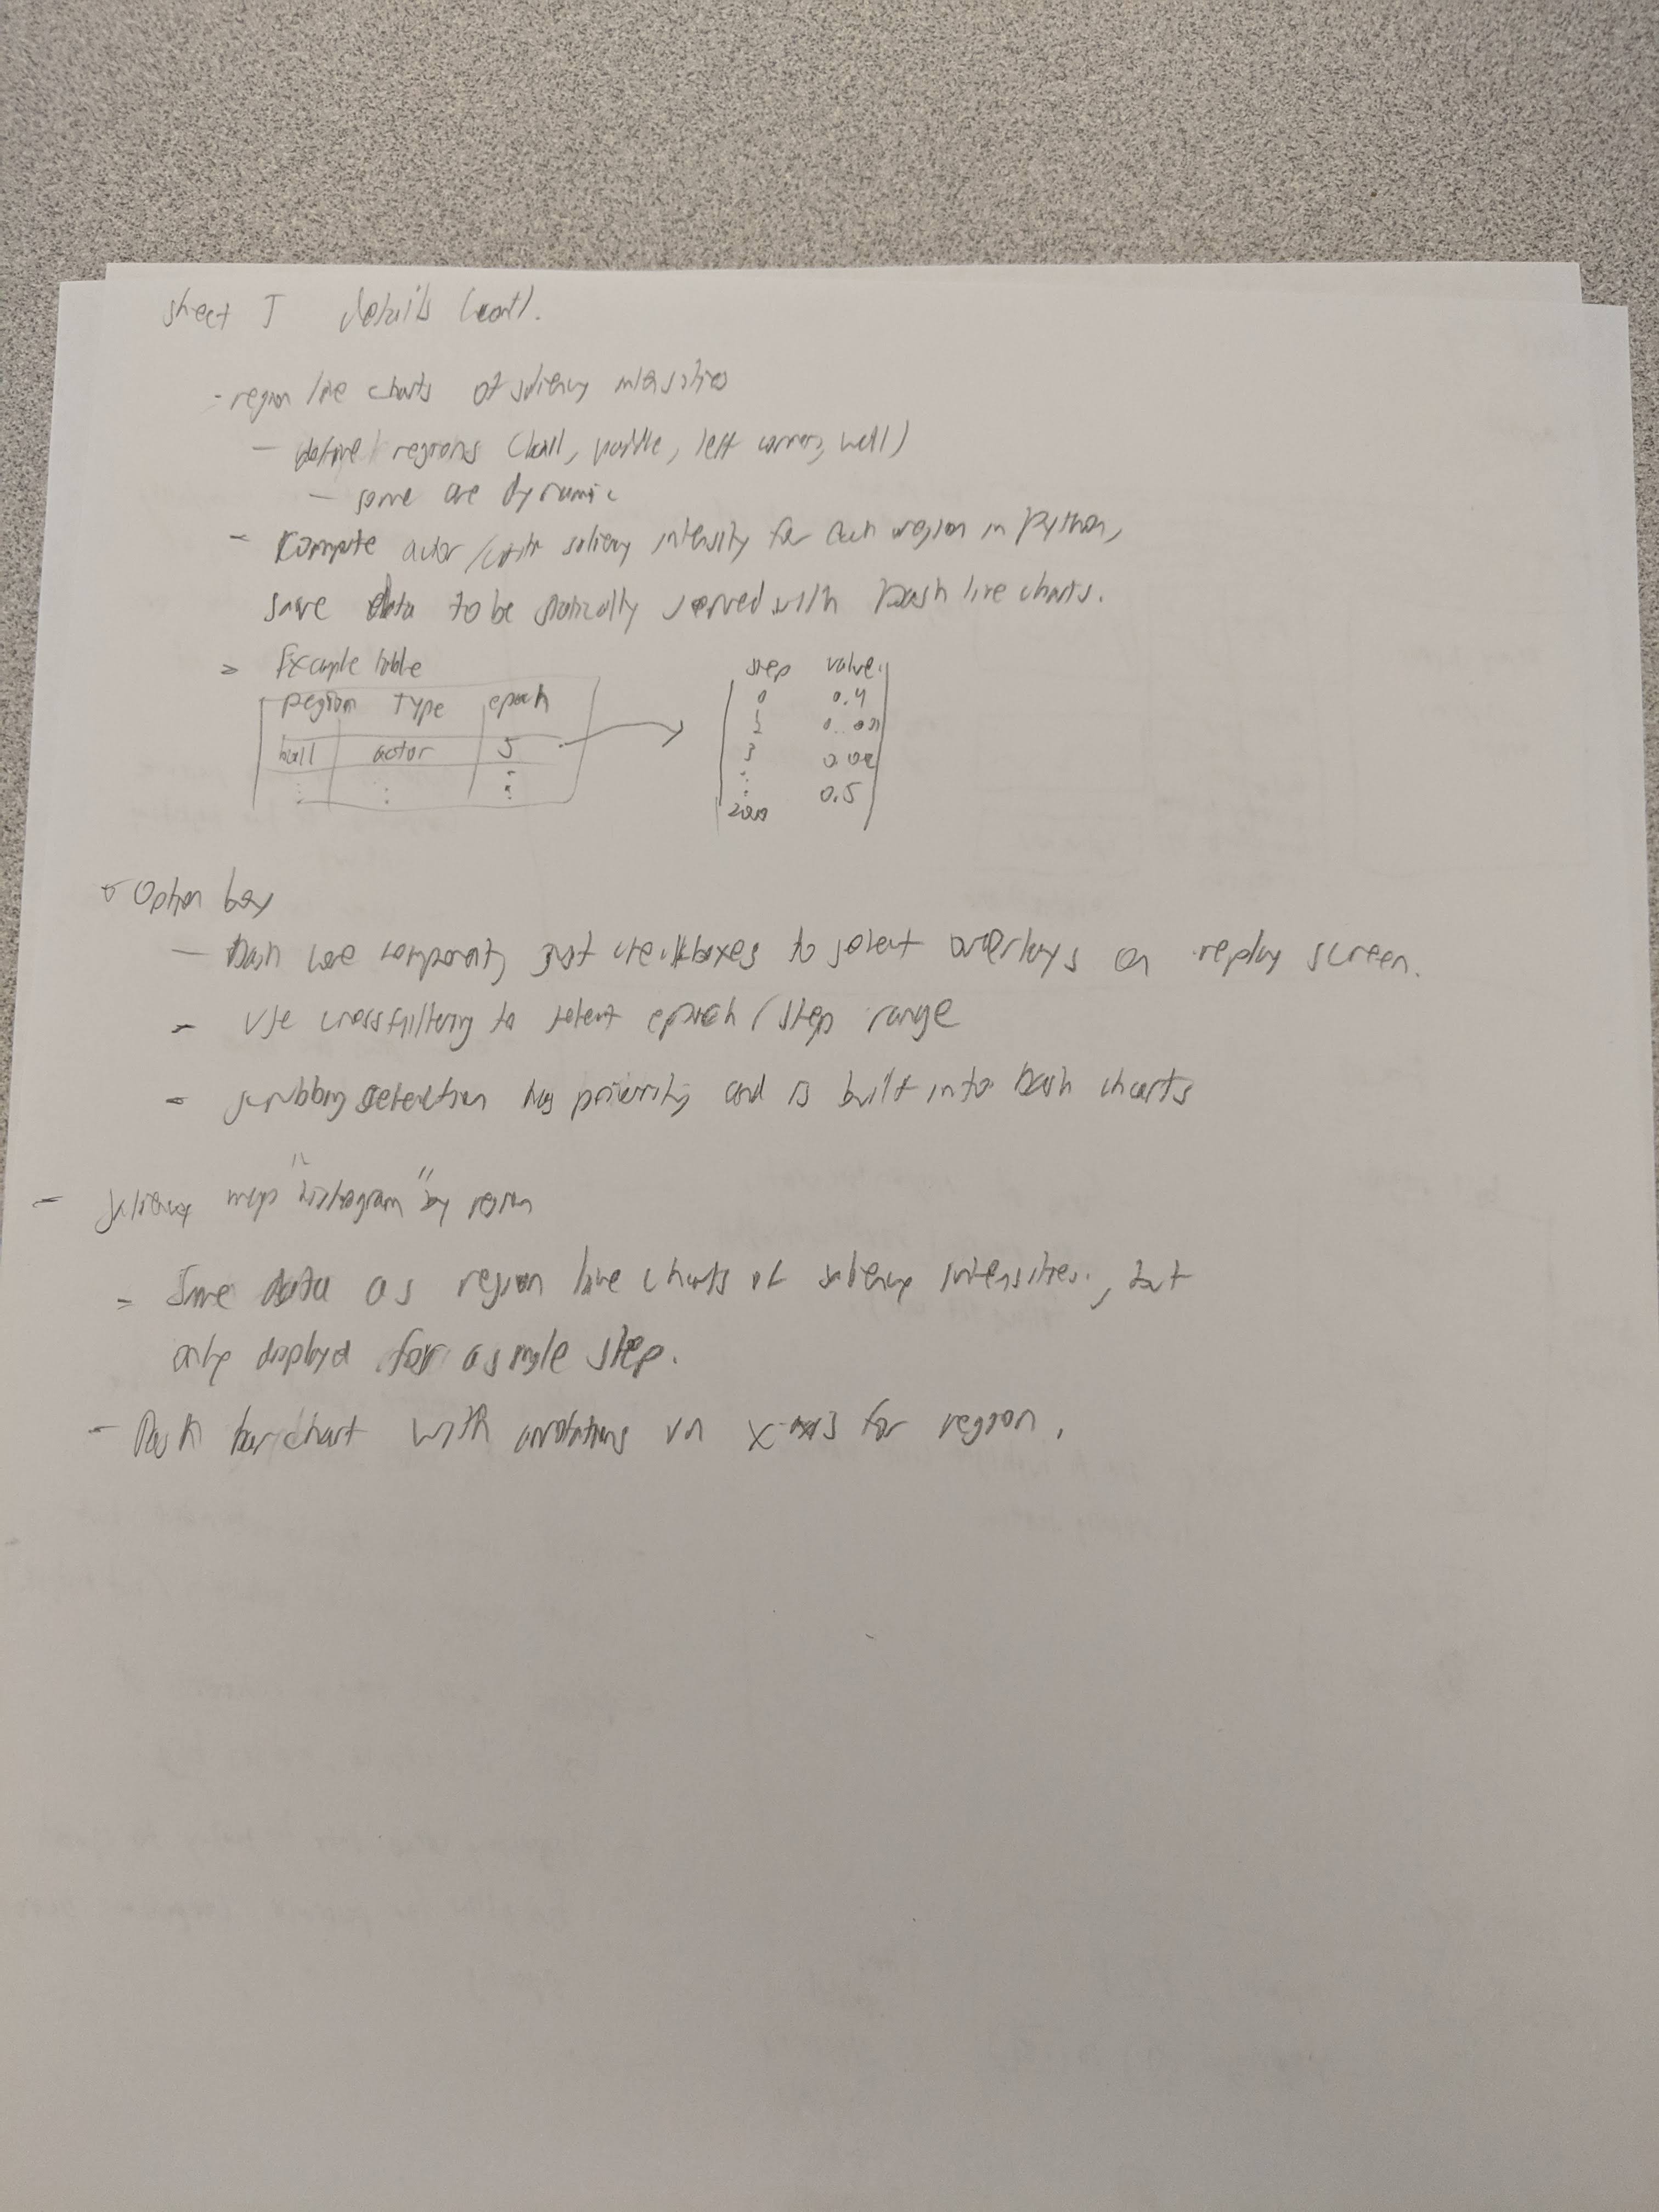 sheet 5 details (cont).
- region line charts of saliency intensities
- define regions (ball, paddle, left corner, wall)
- some are dynamic
- Compute actor/critic saliency intensity for each region in Python,
save data to be statically served with Dash line charts.
- Example table
Region Type epoch
ball actor 5
step value
0 0.4
2
3 0.02
0.5
2000
Option box
- Dash core components, just checkboxes to select overlays on replay screen.
- Use crossfiltering to select epoch / step range
- scrubbing selection has priority and is built into Dash charts
- Saliency map "histogram" by region
- Same data as region line charts of saliency intensities, but
only displayed for a single step.
- Dash bar chart with annotations on x-axis for region.